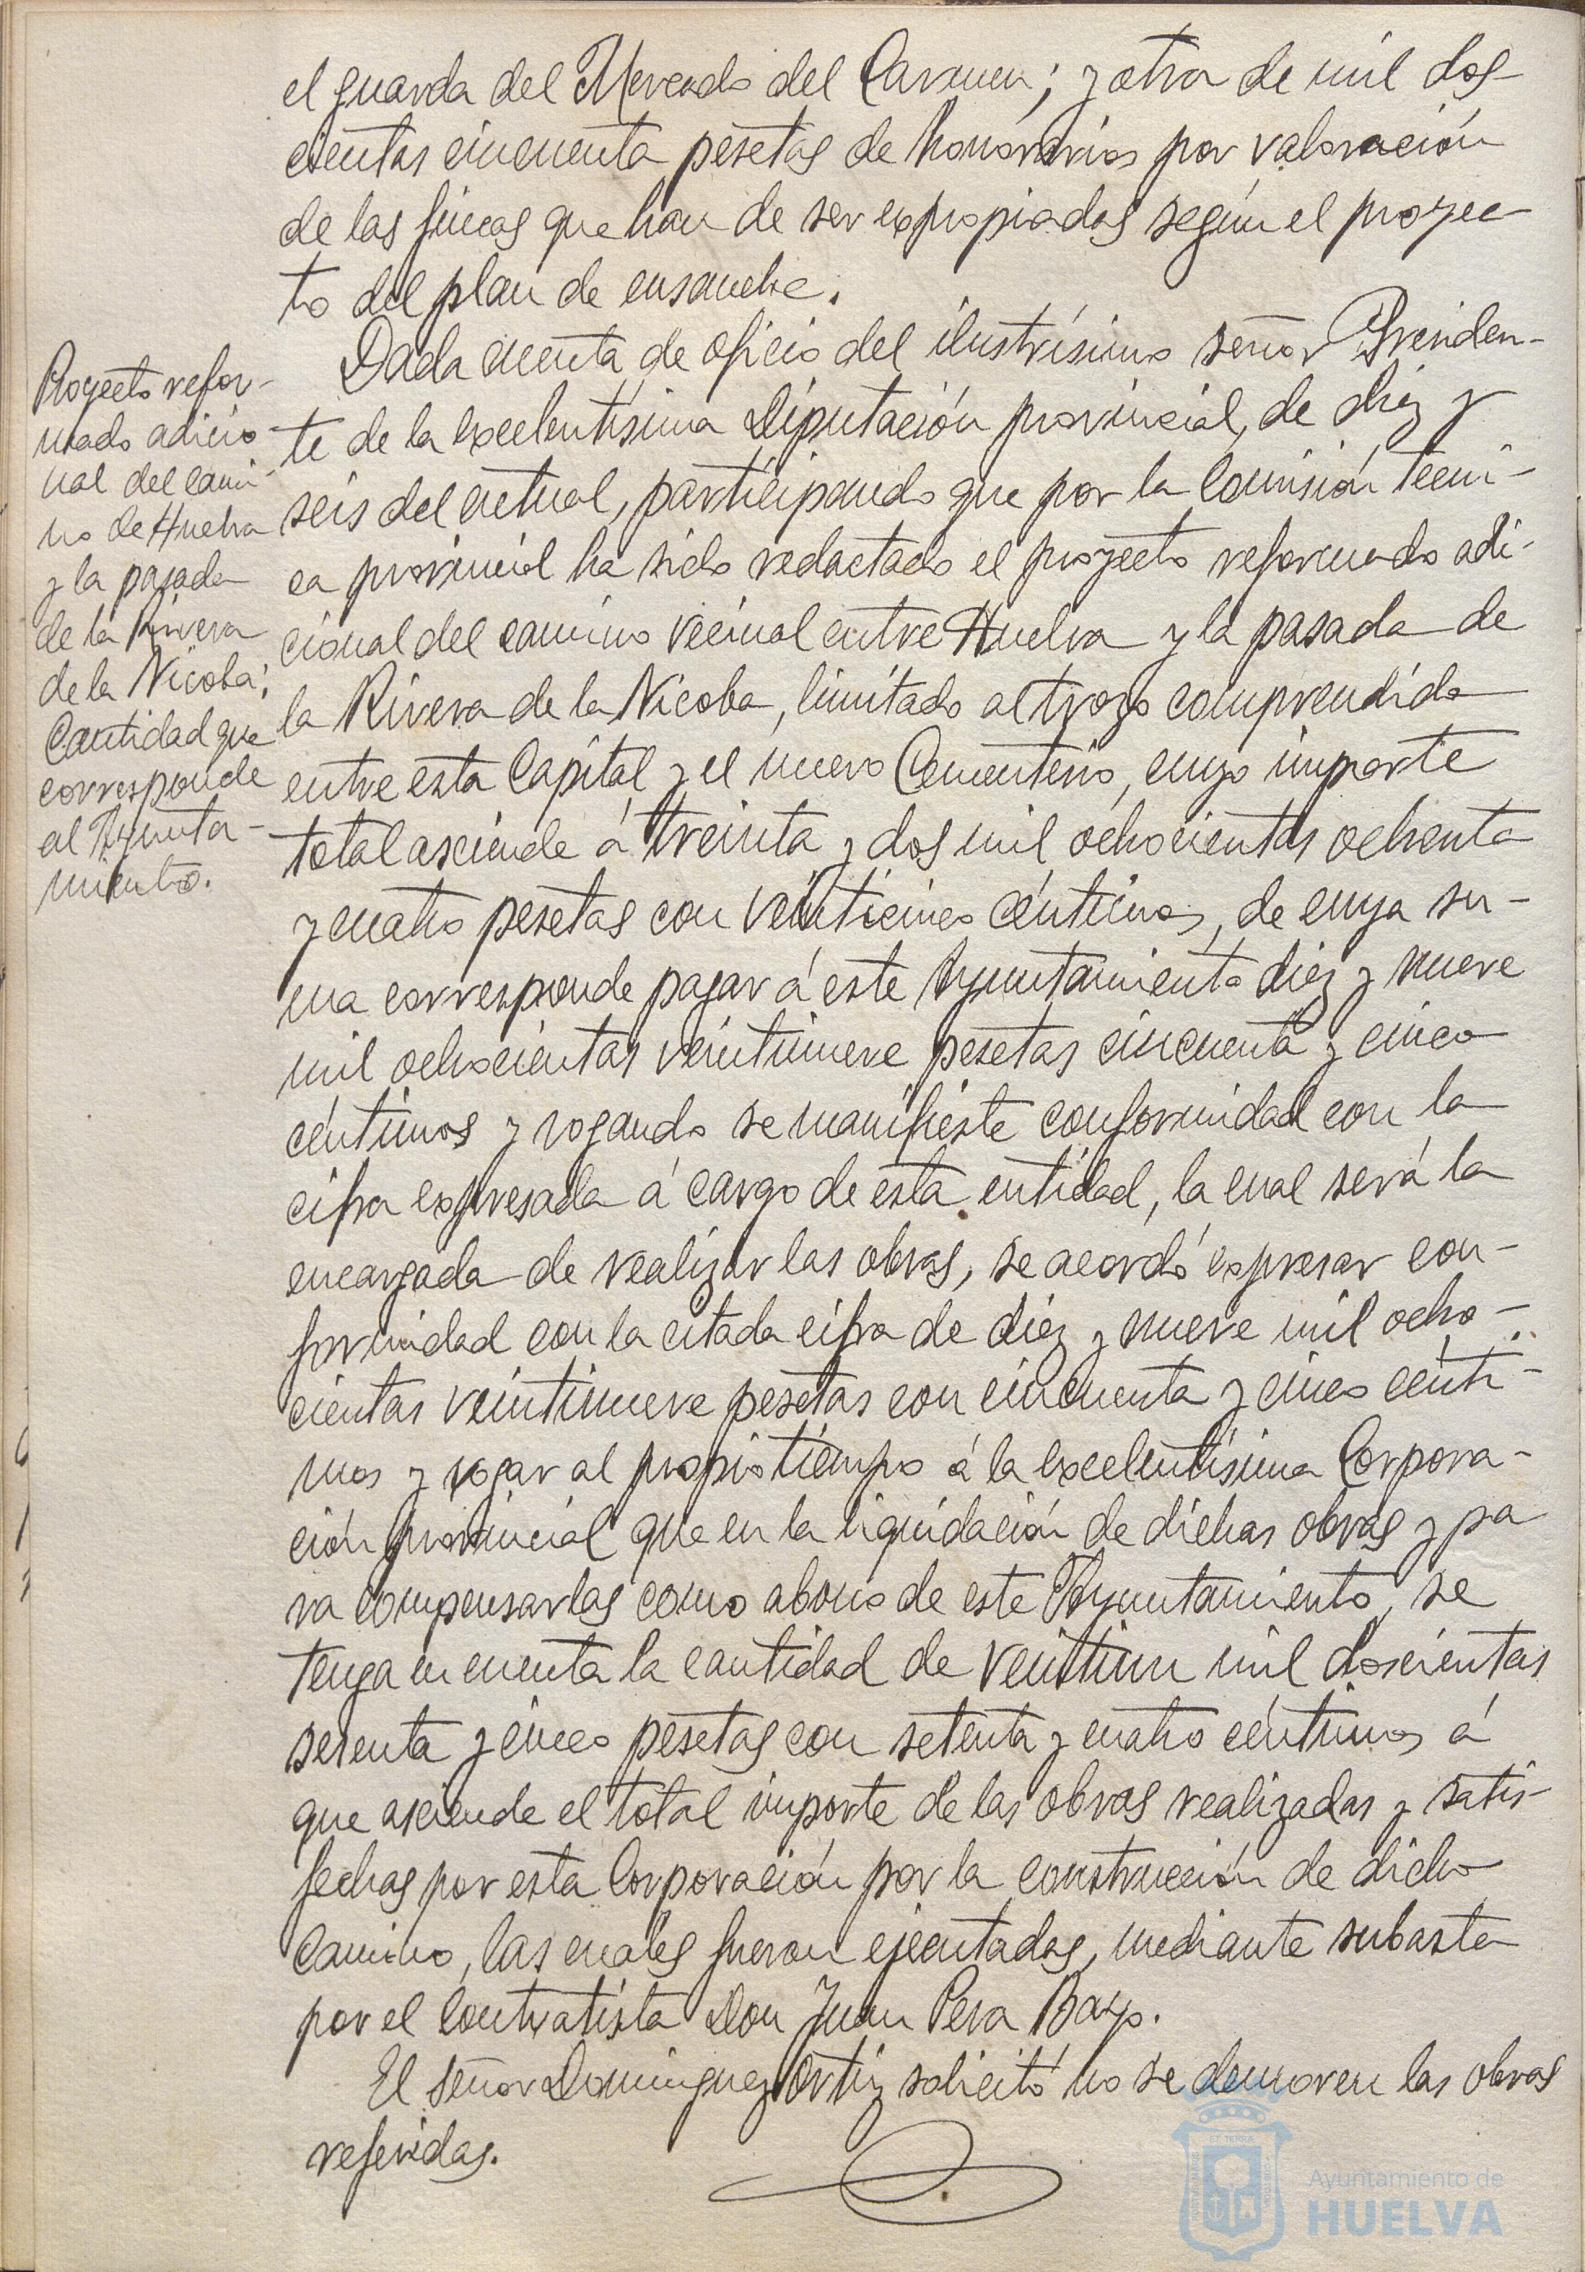 el guarda del Mercado del Carmen; y otra de mil dos-
cientas cincuenta pesetas de honorarios por valoración
de las fincas que han de ser expropiadas según el proyec-
to del plan de ensanche.
Proyecto refor-
mado adicio-
nal del cami-
no de Huelva
y la pasada
de la Rivera
de la Nicoba;
Cantidad que
corresponde
al Ayunta-
miento.
Dada cuenta de oficio del ilustrísimo señor Presiden-
te de la excelentísima Diputación provincial, de diez y
seis del actual, participando que por la Comisión técni-
ca provincial ha sido redactado el proyecto reformado adi-
cional del camino vecinal entre Huelva y la pasada de
la Rivera de la Nicoba, limitado al trozo comprendido
entre esta Capital y el nuevo Cementerio, cuyo importe
total asciende á treinta y dos mil ochocientas ochenta
y cuatro pesetas con veinticinco céntimos, de cuya su-
ma corresponde pagar á este Ayuntamiento diez y nueve
mil ochocientas veintinueve pesetas cincuenta y cinco
céntimos y rogando se manifieste conformidad con la
cifra expresada á cargo de esta entidad, la cual será la
encargada de realizar las obras, se acordó expresar con-
formidad con la citada cifra de diez y nueve mil ocho-
cientas veintinueve pesetas con cincuenta y cinco cénti-
mos y rogar al propio tiempo á la excelentísima Corpora-
ción provincial que en la liquidación de dichas obras y pa
ra compensarlas como abono de este Ayuntamiento, se
tenga en cuenta la cantidad de veintiun mil doscientas
sesenta y cinco pesetas con setenta y cuatro céntimos á
que asciende el total importe de las obras realizadas y satis-
fechas por esta Corporación por la construcción de dicho
Camino, las cuales fueron ejecutadas, mediante subasta
por el contratista Don Juan Pera Bayo.
El señor Domínguez Ortiz solicitó no se demoren las obras
referidas.
Ayuntamiento de
HUELVA